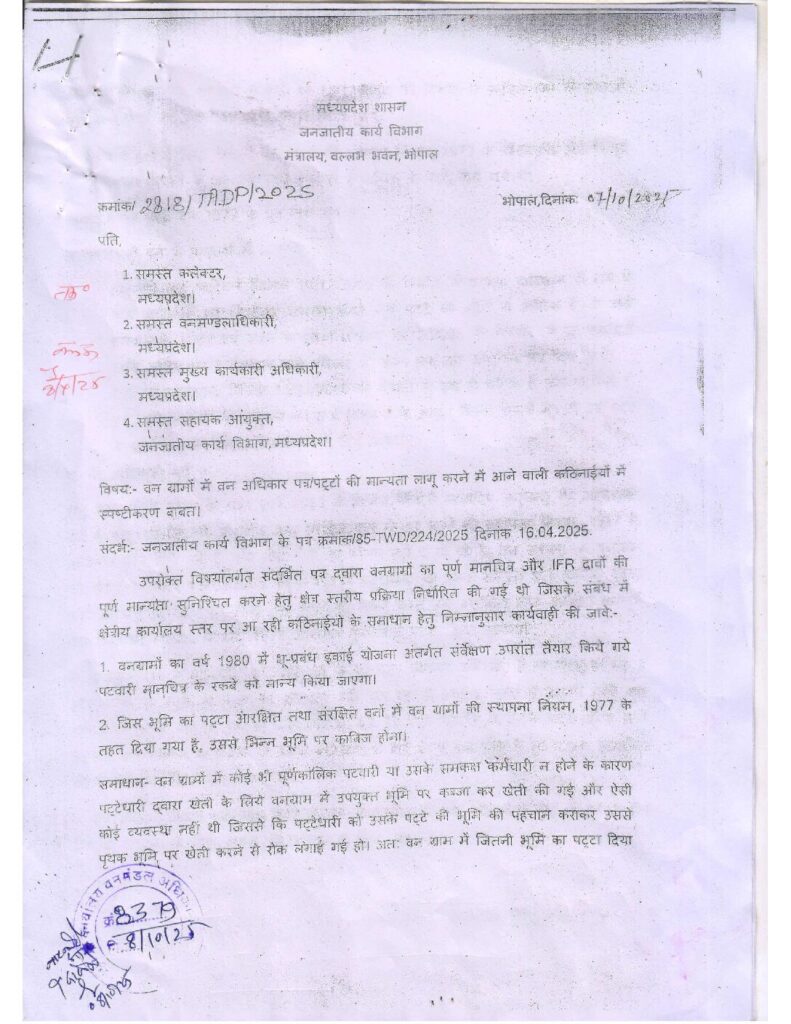 मध्यप्रदेश शासन
जनजातीय कार्य विभाग
मंत्रालय, वल्लभ भवन, भोपाल
क्रमांक/ 2818/TADP/2025
भोपाल,दिनांक 07/10/2025
प्रति,
1. समस्त कलेक्टर,
मध्यप्रदेश।
2. समस्त वनमण्डलाधिकारी,
मध्यप्रदेश।
3. समस्त मुख्य कार्यकारी अधिकारी,
मध्यप्रदेश।
4. समस्त सहायक आयुक्त,
जनजातीय कार्य विभाग, मध्यप्रदेश।
विषय:- वन ग्रामों में वन अधिकार पत्र/पट्टों की मान्यता लागू करने में आने वाली कठिनाईयों में
स्पष्टीकरण बाबत।
संदर्भ:- जनजातीय कार्य विभाग के पत्र क्रमांक/85-TWD/224/2025 दिनांक 16.04.2025.
उपरोक्त विषयांतर्गत संदर्भित पत्र द्वारा वनग्रामों का पूर्ण मानचित्र और IFR दावों की
पूर्ण मान्यता सुनिश्चित करने हेतु क्षेत्र स्तरीय प्रक्रिया निर्धारित की गई थी जिसके संबंध में
क्षेत्रीय कार्यालय स्तर पर आ रही कठिनाईयों के समाधान हेतु निम्नानुसार कार्यवाही की जावे:-
1. वनग्रामों का वर्ष 1980 में भू-प्रबंध इकाई योजना अंतर्गत सर्वेक्षण उपरांत तैयार किये गये
पटवारी मानचित्र के रकबे को मान्य किया जाएगा।
2. जिस भूमि का पट्टा आरक्षित तथा संरक्षित वनों में वन ग्रामों की स्थापना नियम, 1977 के
तहत दिया गया है, उससे भिन्न भूमि पर काबिज होना।
समाधान- वन ग्रामों में कोई भी पूर्णकालिक पटवारी या उसके समकक्ष कर्मचारी न होने के कारण
पट्टेधारी द्वारा खेती के लिये वनग्राम में उपयुक्त भूमि पर कब्जा कर खेती की गई और ऐसी
कोई व्यवस्था नहीं थी जिससे कि पट्टेधारी को उसके पट्टे की भूमि की पहचान कराकर उससे
पृथक भूमि पर खेती करने से रोक लगाई गई हो। अतः वन ग्राम में जितनी भूमि का पट्टा दिया
8379
8/10/25